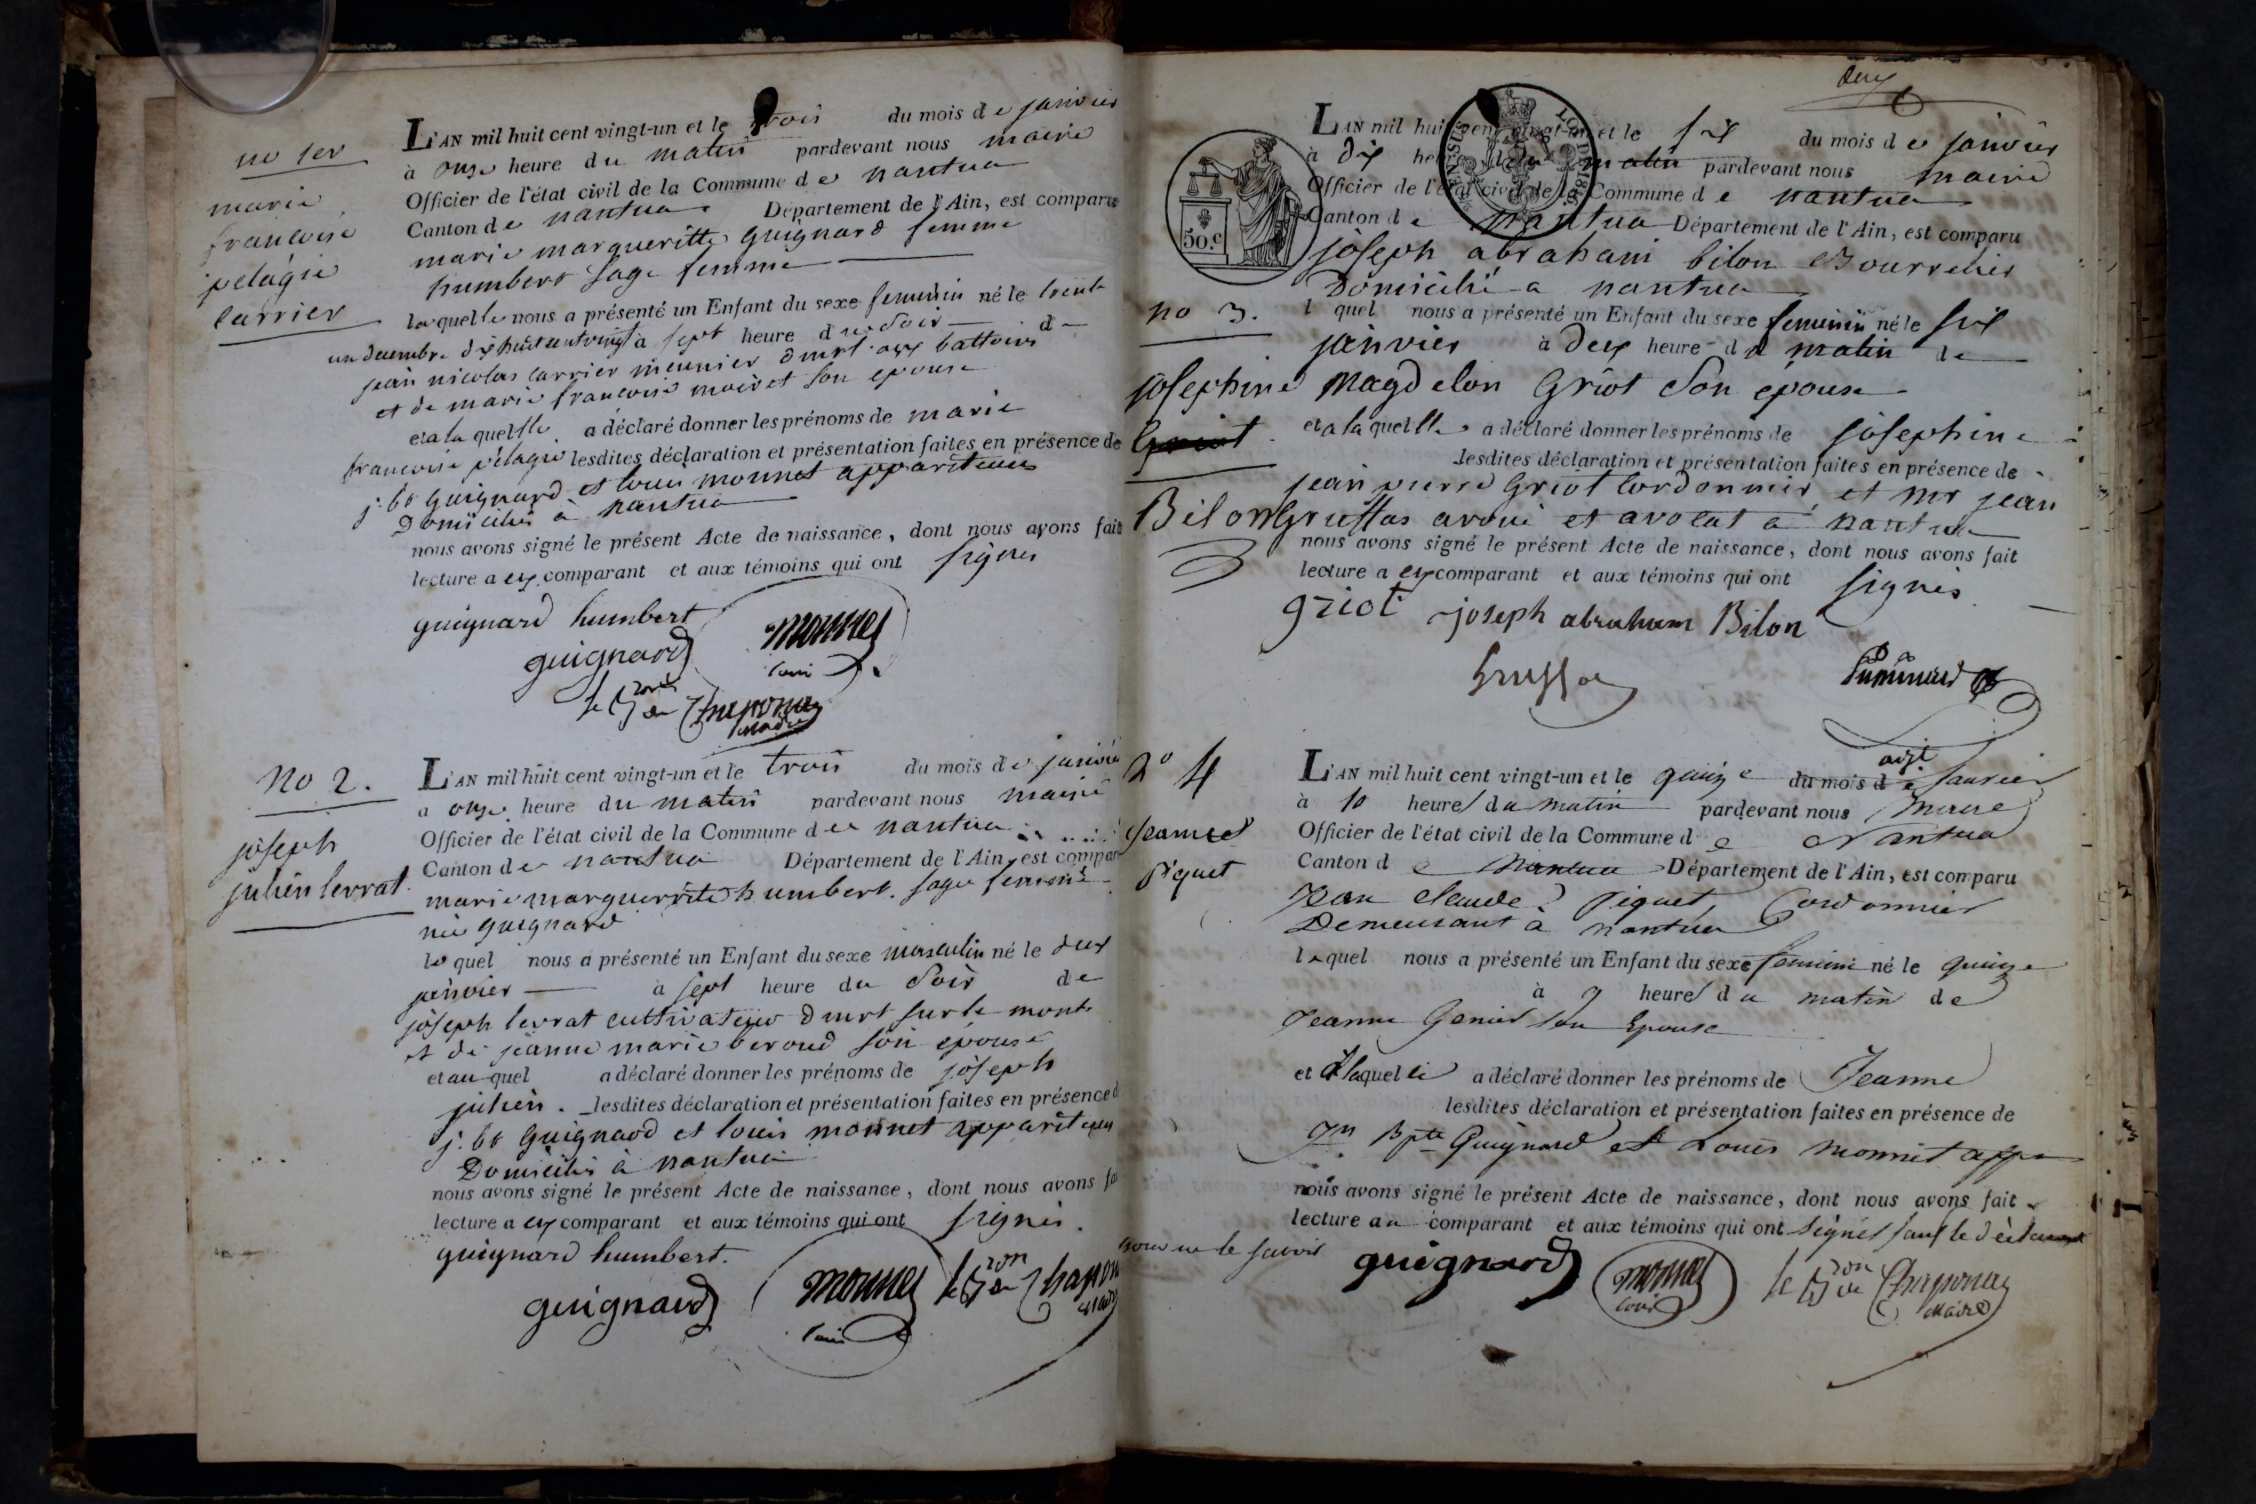 no 1er
marie
francoise
pelagie
carrier
L'AN mil huit cent vingt-un et le trois du mois de janvier
à onze heure du matin pardevant nous maire
Officier de l'état civil de la Commune de nantua
Canton de nantua Département de l'Ain, est comparu
marie margueritte guignard femme
humbert sage femme
laquelle nous a présenté un Enfant du sexe feminin né le trente
un decembre dix huit cent vingt à sept heure du soir d
jean nicolas carrier meunier dmrt aux battoirs
et de marie francoise moiret son epouse
et a la quelle a déclaré donner les prénoms de marie
francoise pélagie lesdites déclaration et présentation faites en présence de
j. bt guignard et louis monnet appariteurs
Domiciliés à nantua
nous avons signé le présent Acte de naissance, dont nous avons fait
lecture a ex comparant et aux témoins qui ont signés
guignard humbert
monnet
louis
guignard
le Bon de Chaponay
Maire
no 2.
joseph
julien levrat
L'AN mil huit cent vingt-un et le trois du mois de janvier
a onze heure du matin pardevant nous maire
Officier de l'état civil de la Commune de nantua
Canton de nantua Département de l'Ain, est compar
marie marguerrite humbert sage femme
née guignard
le quel nous a présenté un Enfant du sexe masculin né le deux
janvier à sept heure du soir de
joseph levrat cultivateur dmrt sur le mont
et de jeanne marie beroud son épouse
et au quel a déclaré donner les prénoms de joseph
julien. lesdites déclaration et présentation faites en présence d
j. bt guignard et louis monnet appariteurs
Domiciliés à nantua
nous avons signé le présent Acte de naissance, dont nous avons fai
lecture a ex comparant et aux témoins qui ont signés.
guignard humbert.
guignard
monnet
louis
le Bon de Chapon
Maire
deux
50.c
L'AN mil huit cent vingt-un et le six du mois de janvier
à dix heure du matin pardevant nous maire
Officier de l'état civil de la Commune de nantua
Canton de nantua Département de l'Ain, est comparu
joseph abraham bilon Bourrelier
Domicilié a nantua
no 3.
l quel nous a présenté un Enfant du sexe feminin né le six
janvier à deux heure du matin de
josephine
magdelon Griot son épouse
Griot
et a la quelle a déclaré donner les prénoms de josephine
lesdites déclaration et présentation faites en présence de
jean pierre Griot Cordonnier et mr jean
Bilon
Gruffas avoué et avocat à nantua
nous avons signé le présent Acte de naissance, dont nous avons fait
lecture a ex comparant et aux témoins qui ont signés
griot joseph abraham Bilon
Gruffas
adjt
2o 4
Jeanne
Piquet
L'AN mil huit cent vingt-un et le quinze du mois de Janvier
à 10 heure du matin pardevant nous Maire
Officier de l'état civil de la Commune de Nantua
Canton de Nantua Département de l'Ain, est comparu
Jean Claude Piquet Cordonnier
Demeurant à Nantua
lequel nous a présenté un Enfant du sexe feminin né le quinze
à 7 heure du matin de
Jeanne Genier son Epouse
et à laquelle a déclaré donner les prénoms de Jeanne
lesdites déclaration et présentation faites en présence de
Jn Bpte Guignard et Louis Monnet app
nous avons signé le présent Acte de naissance, dont nous avons fait
lecture au comparant et aux témoins qui ont signés sauf le déclarant
pour ne le savoir
guignard
monnet
louis
le Bon de Chaponay
Maire